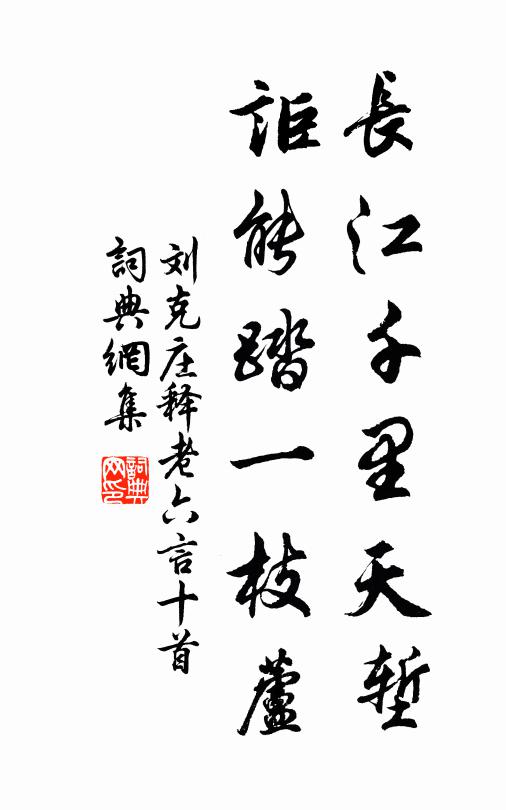 長江千里天堑
詎能踏一枝蘆
刘克庄释老六言十首
詞典網集
詞典網印